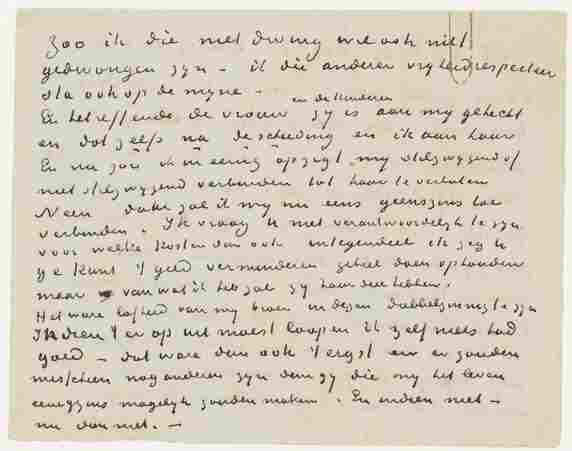 Zoo ik die niet dwing wil ook niet
gedwongen zyn – ik die anderer vryheid respecteer
sta ook op de myne –
en de kinderen
En betreffende de vrouw zy is aan my gehecht
en dat zelfs na de scheiding en ik aan haar
En nu zou ik
my stilzwygend of
niet stilzwygend verbinden tot haar te verlaten
Neen daar zal ik my nu eens geenszins toe
verbinden. Ik vraag U niet verantwoordelyk te zyn
voor welke kosten dan ook integendeel ik zeg U
ge kunt 't geld verminderen geheel doen ophouden
maar van wat ik heb zal zy haar deel hebben.
Het ware lafheid van my broer in dezen dubbelzinnig te zyn
Indien 't er op uit moest loopen ik zelf niets had
goed – dat ware dan ook 't ergst en er zouden
misschien nog anderen zyn dan gy die my het leven
eenigzins mogelyk zouden maken. En indien niet –
nu dan niet. –